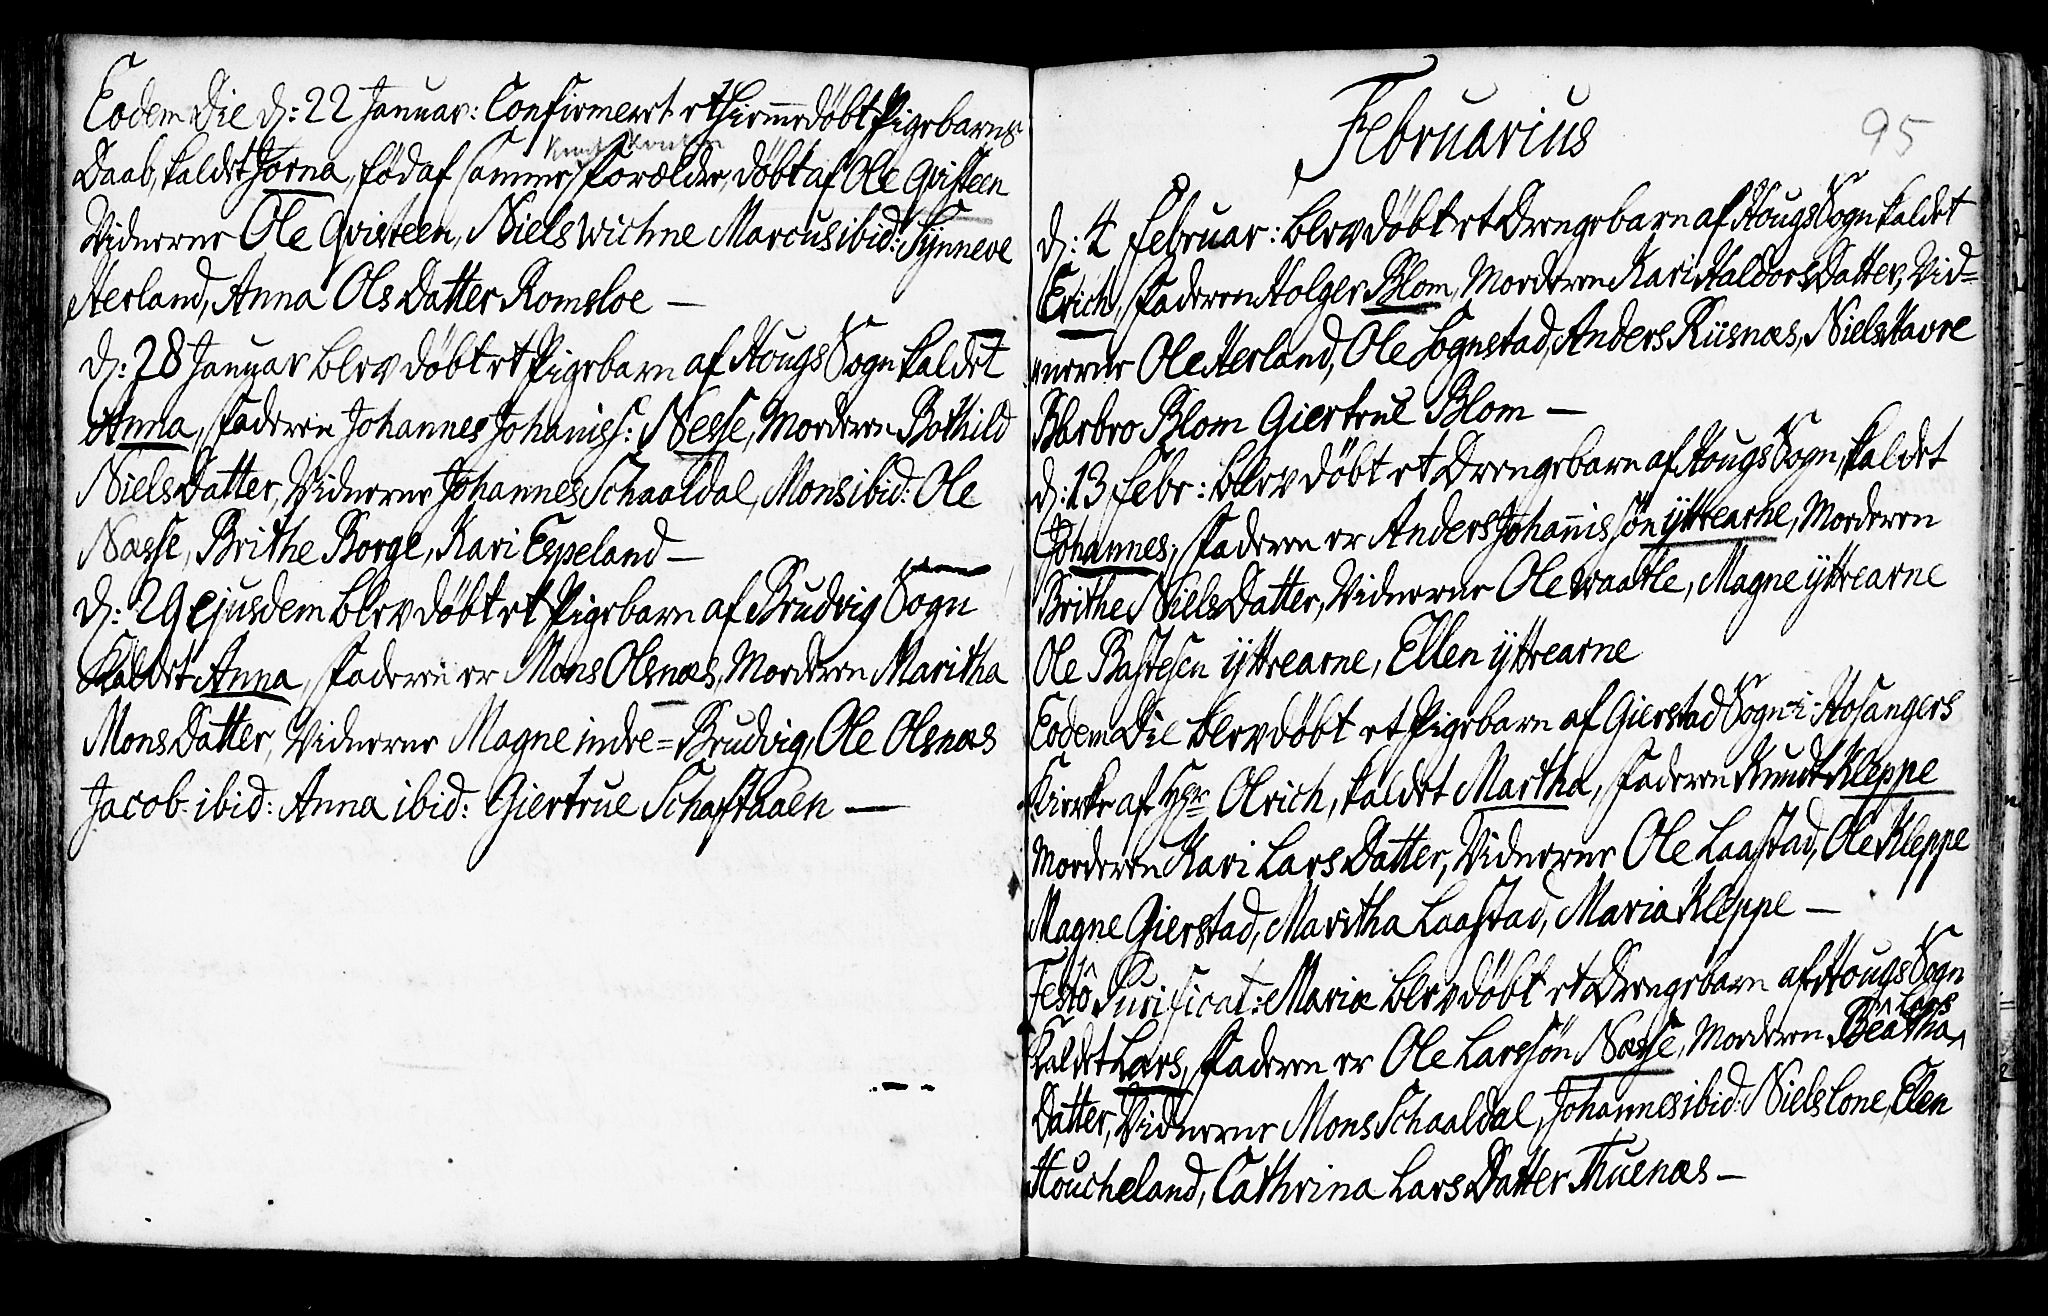 Eodem Die d: 22 Januar: Confirmeret et hiemmedøbt Pigebarns
Daab, kaldet Jørna, fød af samme Forældre, døbt af Ole Qvisteen
Vidnerne Ole Qvisteen, Niels Wichne Marcus ibid: Synneve
Herland, Anna Ols Datter Romsloe —
d: 28 Januar blev døbt et Pigebarn af Hougs Sogn kaldet
Anna, Faderen Johannes Johaniss: Nesse, Moderen Bothild
Niels Datter, Vidnerne Johannes Schaaldal, Mons ibid: Ole
Næsse, Brithe Borge, Kari Espeland —
d: 29 ejusdem blev døbt et Pigebarn af Brudvig Sogn
Kaldet Anna, Faderen er Mons Olsnæs, Moderen Maritha
Mons Datter, Vidnerne Magne indre=Brudvig, Ole Olsnæs
Jacob ibid: Anna ibid: Giertrue Schaftaaen —
Februarius
95
d: 4 Februar: blev døbt et Drengebarn af Hougs Sogn kaldet
Erich, Faderen Holger Blom, Moderen Kari Haldors Datter, Vid=
nerne Ole Herland, Ole Sognstad, Anders Riisnæs, Niels Havre
Barbro Blom Giertrue Blom —
d: 13 Febr: blev døbt et Drengebarn af Hougs Sogn, kaldet
Johannes, Faderen er Anders Johannissøn yttrearne, Moderen
Brithe Niels Datter, Vidnerne Ole Waatle, Magne yttrearne
Ole Bastesen yttrearne, Ellen yttrearne
Eodem Die blev døbt et Pigebarn af Gierstad Sogn i Hosangers
Kirke af Hr Olrich, kaldet Martha, Faderen Knudt Kleppe
Moderen Kari Lars Datter, Vidnerne Ole Laastad, Ole Kleppe
Magne Gierstad, Maritha Laastad, Maria Kleppe —
Festô Purificat: Mariæ blev døbt et Drengebarn af Hougs Sogn
kaldet Lars, Faderen er Ole Larssøn Næsse, Moderen Beatha Lars
Datter, Vidnerne Mons Schaaldal, Johannes ibid: Niels Lone, Elen
Houcheland, Cathrina Lars Datter Thuenæs —